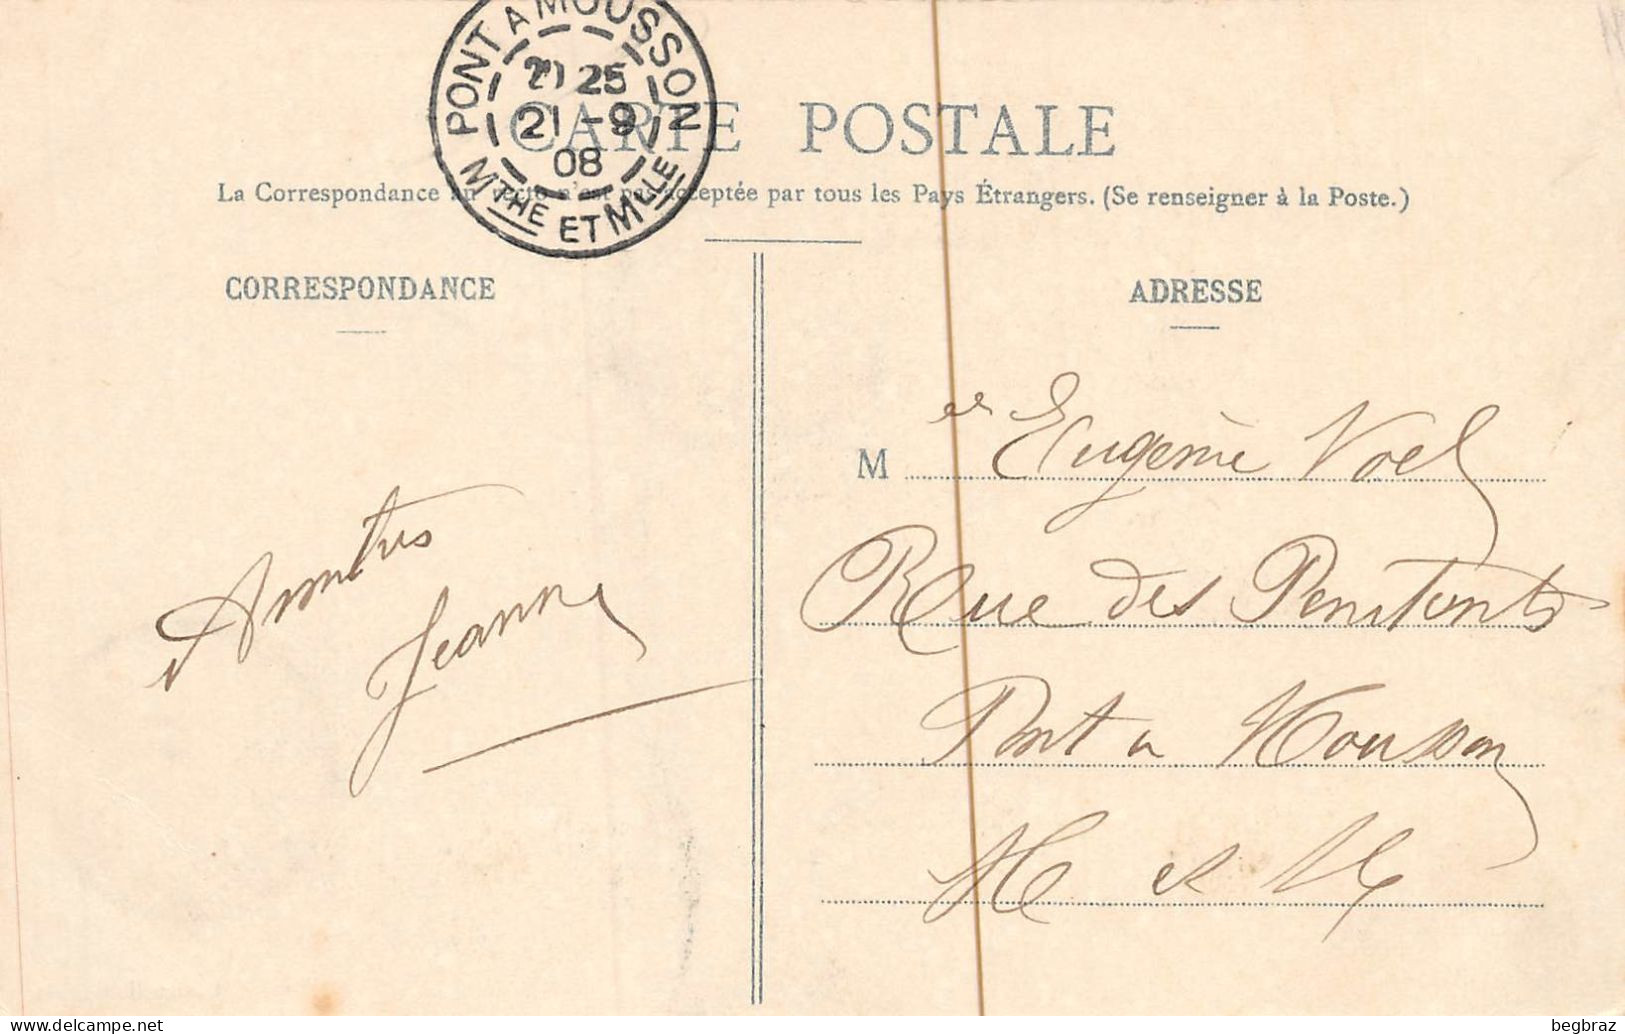 PONT A MOUSSON
25
21 - 9
08
MTHE ET MLLE
CARTE POSTALE
La Correspondance au recto n'est pas acceptée par tous les Pays Étrangers. (Se renseigner à la Poste.)
CORRESPONDANCE
ADRESSE
M elle Eugénie Noel
Rue des Penitents
Pont a Mousson
M et M
Amitiés
Jeanne
begbraz